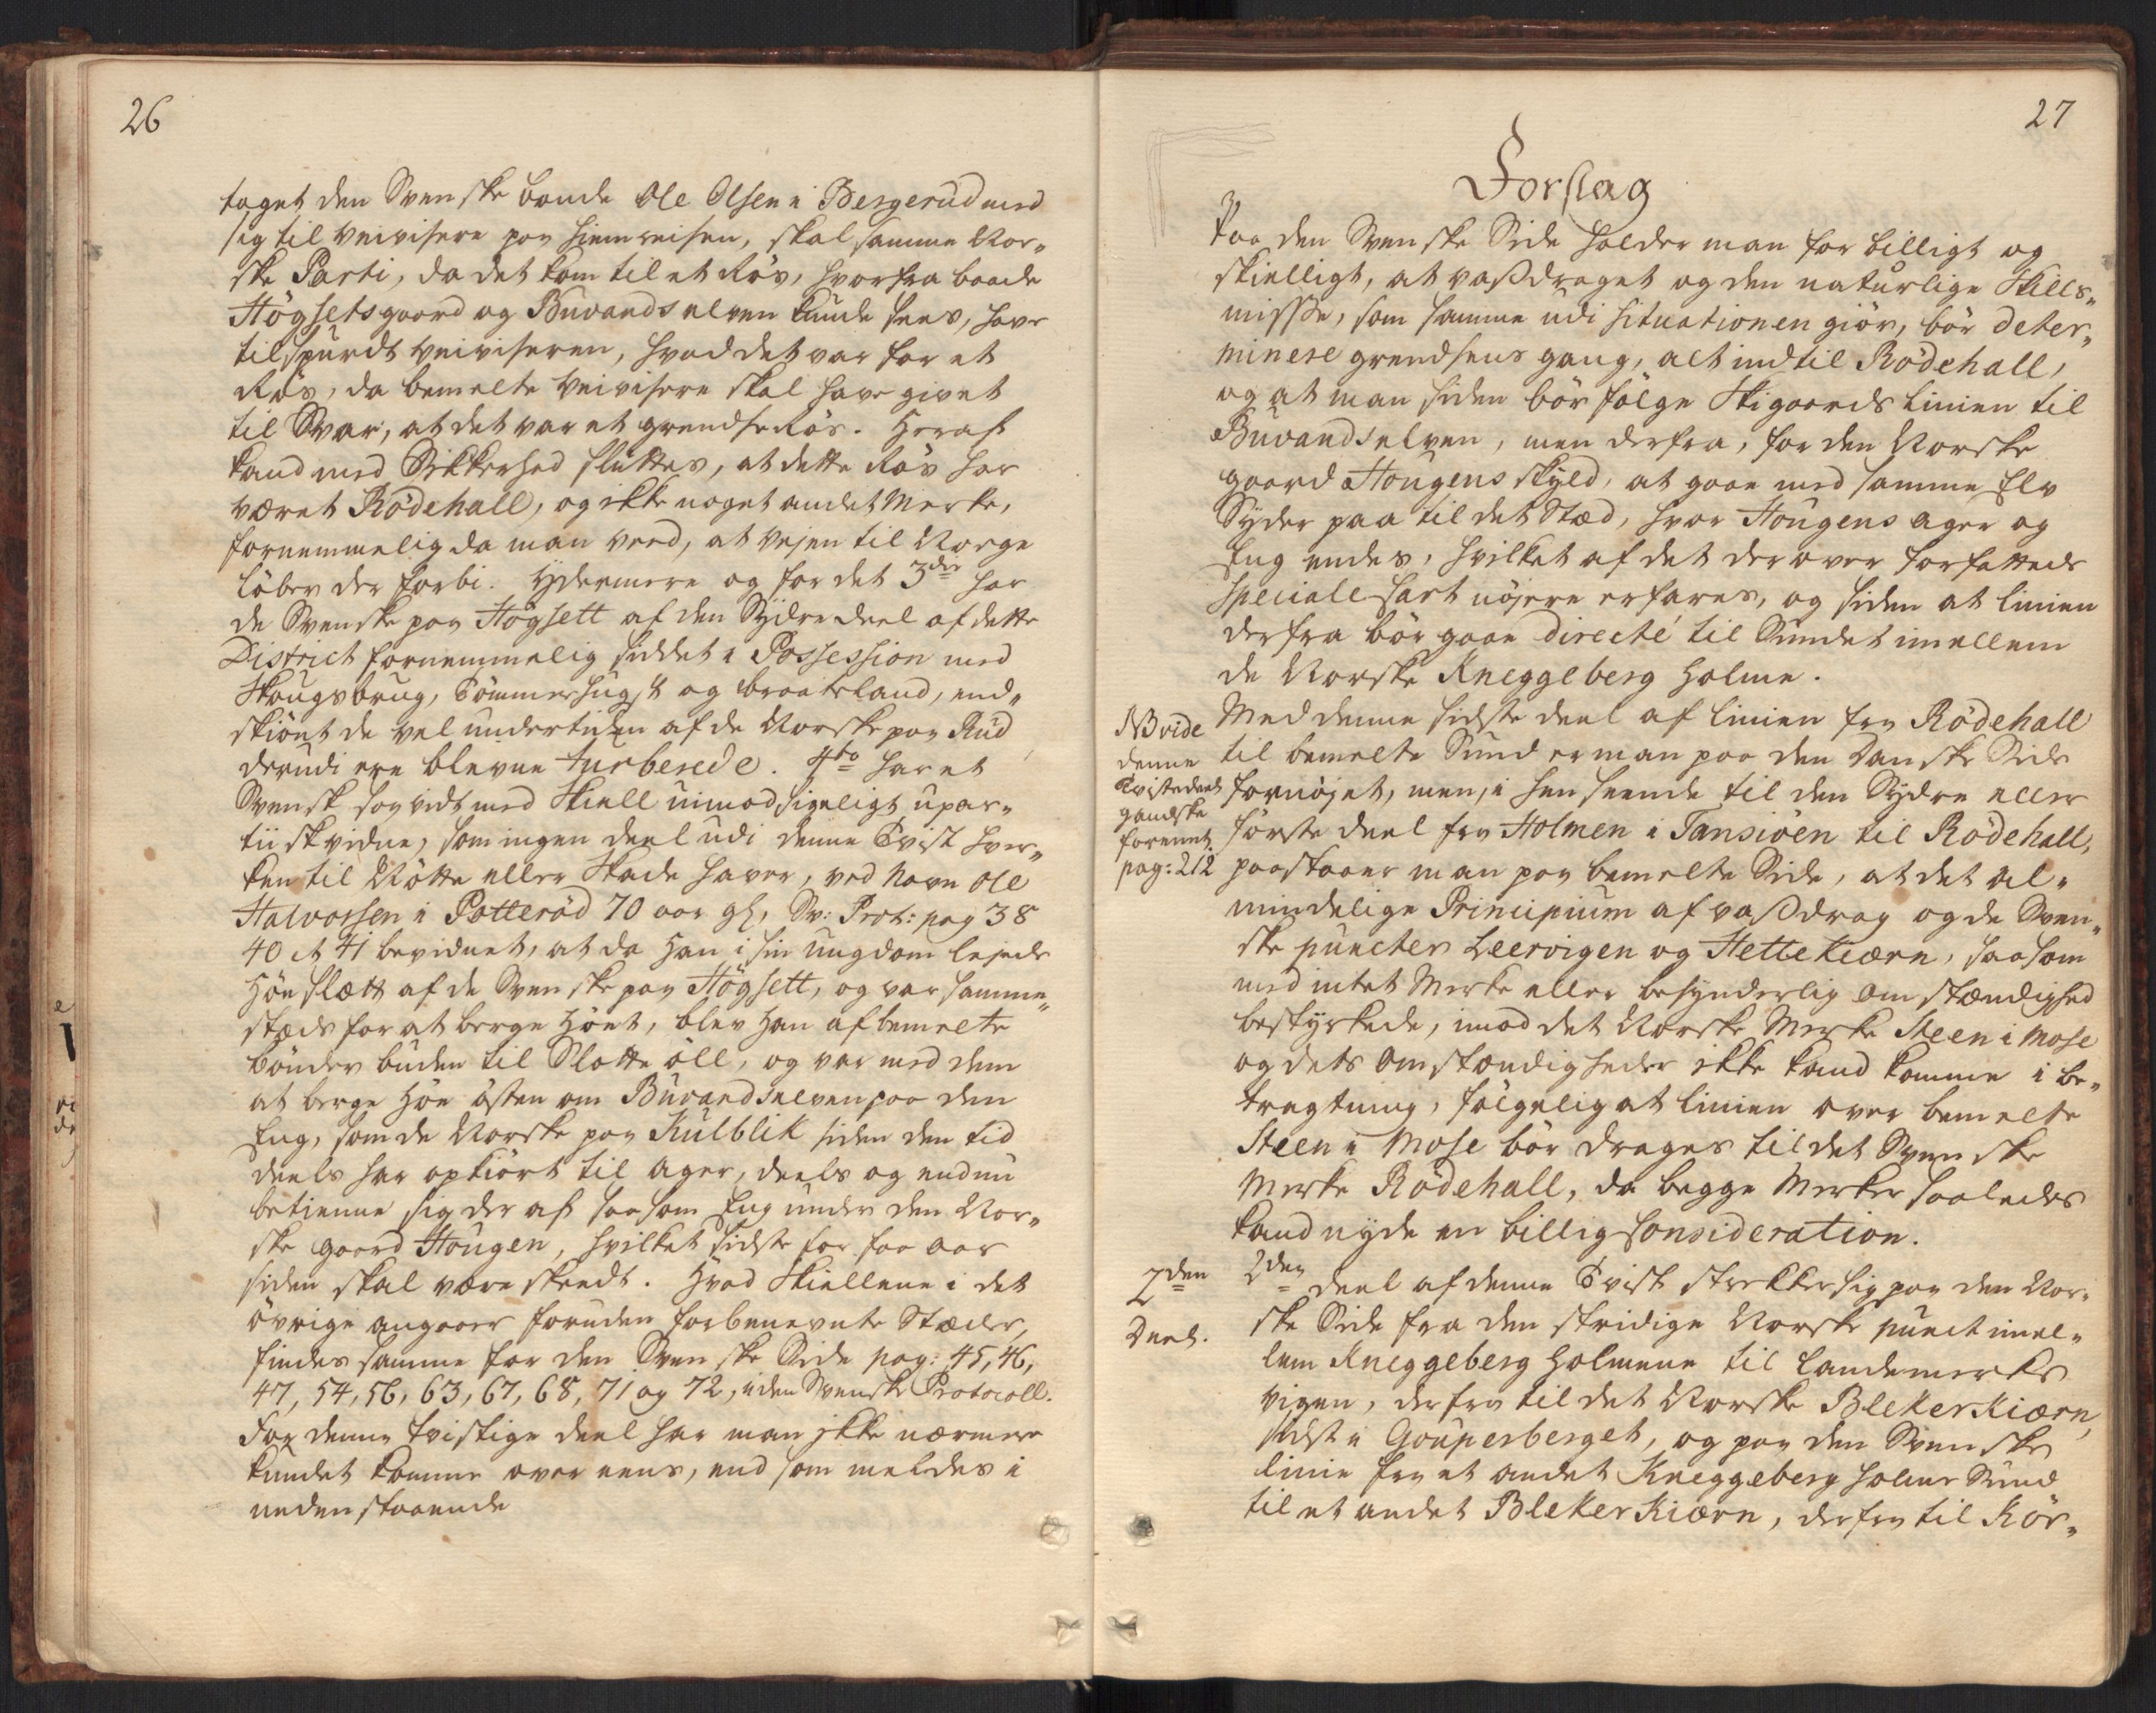 26
taget den Svenske bonde Ole Olsen i Bergerud med
sig til veivisere paa hiemreisen, skal samme Nor„
ske Parti, da det kom til et Rös, hvorfra baade
Högsetsgaard og Buvandselven kunde sees, have
tilspurdt veiviseren, hvad det var for et
Rös, da bemelte veivisere skal have givet
til Svar, at det var et grendse Rös. Heraf
kand med Sikkerhed sluttes, at dette Rös har
været Rödehall, og ikke noget andet Merke,
fornemmelig da man veed, at vejen til Norge
löber der forbi. Ydermere og for det 3die har
de Svenske paa Högsett af den Sydre deel af dette
District fornemmelig siddet i Possession med
Skougsbrug, Tömmerhugst og braateland, end„
skiönt de vel undertiden af de Norske paa Rud
derudi ere blevne turberede. 4to har et
Svensk saa vidt med Skiell uimodsigeligt upar„
tiisk vidne, som ingen deel udi denne Tvist hver„
ken til Nötte eller Skade haver, ved Navn Ole
Halvorsen i Potteröd 70 aar gl, Sv: Prot: pag 38
40 et 41 bevidnet, at da han i sin ungdom lejede
Höeslætt af de Svenske paa Högsett, og var samme„
stæds for at berge Höet, blev han af bemelte
bönder buden til Slotte öll, og var med dem
at berge Höe östen om Buvandselven paa den
Eng, som de Norske paa Kulblik siden den tid
deels har opkiört til Ager, deels og endnu
betienne sig der af saasom Eng under den Nor„
ske gaard Hougen, hvilket sidste for faa aar
siden skal være skeedt. Hvad Skiellene i det
övrige angaaer foruden forbenevnte Stæder,
findes samme for den Svenske Side pag: 45, 46,
47, 54, 56, 63, 67, 68, 71 og 72, i den Svenske Protocoll.
For denne tvistige deel har man ikke nærmere
kundet komme over eens, end som meldes i
nedenstaaende
27
Forslag
Paa den Svenske Side holder man for billigt og
skielligt, at vaßdraget og den naturlige Skills„
misse, som samme udi situationen giör, bör deter„
minere grendsens gang, alt ind til Rödehall,
og at man siden bör fölge Skigaards Linien til
Buvandselven, men derfra, for den Norske
gaard Hougens skyld, at gaae med samme Elv
Syder paa til det Stæd, hvor Hougens Ager og
Eng endes, hvilket af det derover forfattede
Speciale Cart nöjere erfares, og siden at linien
derfra bör gaae directé til Sundet imellem
de Norske Kneggeberg Holme.
Med denne sidste deel af linien fra Rödehall
til bemelte Sund er man paa den Danske Side
fornöjet, men, i henseende til den Sydre eller
förste deel fra Holmen i Tansiöen til Rödehall,
paastaaer man paa bemelte Side, at det al„
mindelige Principium af vaßdrag og de Sven„
ske puncter Leervigen og Hettekiærn, saasom
med intet Merke eller besynderlig omstændighed
bestyrkede, imod det Norske Merke Steen i Mose
og dets omstændigheder ikke kand komme i be„
tragtning, fölgelig at linien over bemelte
Steen i Mose bör drages til det Svenske
Merke Rödehall, da begge Merker saaledes
kand nyde en billig Consideration.
NB vide
denne
Tvistedeel
gandske
foreenet.
pag: 212
2den
Deel.
2den deel af denne Tvist strekker sig paa den Nor„
ske Side fra den stridige Norske punct imel„
lem Kneggeberg Holmene til Landemerks
vigen, derfra til det Norske Blekerkiærn,
sidst i Gouperberget, og paa den Svenske
linie fra et andet Kneggeberg Holme Sund
til et andet Blekerkiærn, derfra til Kör„